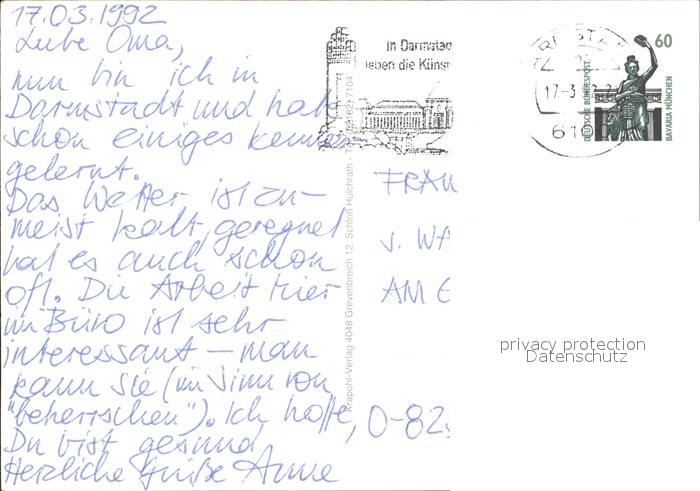 17.03.1992
Liebe Oma,
nun bin ich in
Darmstadt und habe
schon einiges kennen
gelernt.
Das Wetter ist zu-
meist kalt, geregnet
hat es auch schon
oft. Die Arbeit hier
im Büro ist sehr
interessant – man
kann sie (im Sinn von
"beherrschen"). Ich hoffe,
Du bist gesund
Herzliche Grüße Anne
In Darmstad
leben die Künst
17-3
61
60
DEUTSCHE BUNDESPOST
BAVARIA MÜNCHEN
Krapohl-Verlag 4048 Grevenbroich 12, Schloß Hülchrath
FRAU
v. WA
AM
D-82
privacy protection
Datenschutz